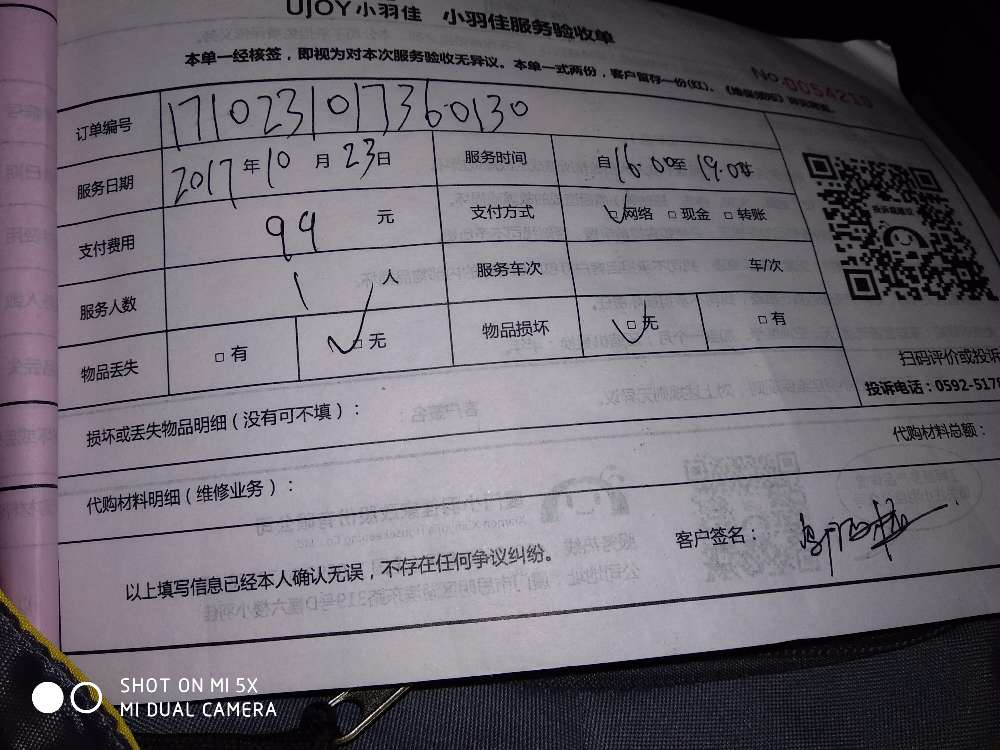 UJOY小羽佳 小羽佳服务验收单
本单一经核签，即视为对本次服务验收无异议。本单一式两份，客户留存一份(红)、
No.0054210
订单编号 1710231017360130
服务日期 2017年10月23日 服务时间 自16:00至19:00止
支付费用 99 元 支付方式 □网络 □现金 □转账
服务人数 1 人 服务车次 车/次
物品丢失 □有 □无 物品损坏 □无 □有
扫码评价或投诉
投诉电话：0592-517
损坏或丢失物品明细（没有可不填）：
代购材料总额：
代购材料明细（维修业务）：
客户签名：
以上填写信息已经本人确认无误，不存在任何争议纠纷。
SHOT ON MI 5X
MI DUAL CAMERA